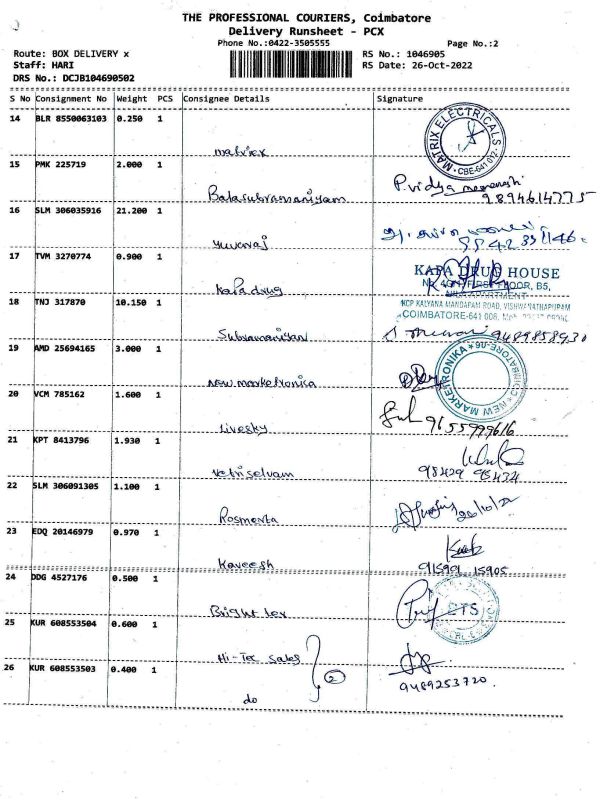 THE PROFESSIONAL COURIERS, Coimbatore
Delivery Runsheet - PCX
Phone No.:0422-3505555 Page No.:2
Route: BOX DELIVERY x RS No.: 1046905
Staff: HARI RS Date: 26-Oct-2022
DRS No.: DCJB104690502
S No Consignment No Weight PCS Consignee Details Signature
14 BLR 8550063103 0.250 1
matriex MATRIX ELECTRICALS CBE-641 012
15 PMK 225719 2.000 1
Balasubramaniyam P. vidya 9894614775
16 SLM 306035916 21.200 1
yuvaraj
17 TVM 3270774 0.900 1
Kapa drug KAPA DRUG HOUSE
FIRST FLOOR, B5,
18 TNJ 317870 10.150 1 KCP KALYANA MANDAPAM ROAD, VISHWANATHAPURAM
COIMBATORE-641 006
Subramaniyan 9489858930
19 AMD 25694165 3.000 1
New marketronica NEW MARKETRONIKA COIMBATORE-06
20 VCM 785162 1.600 1
Livesky 9655999616
21 KPT 8413796 1.930 1
Vetriselvam 98429 95434
22 SLM 306091305 1.100 1
Rosmerta 26/10/22
23 EDQ 20146979 0.970 1
Kaveesh 91591 15905
24 DDG 4527176 0.500 1
Bright tex ETS
25 KUR 608553504 0.600 1
Hi-Tec sales
26 KUR 608553503 0.400 1
2
do 9489253720